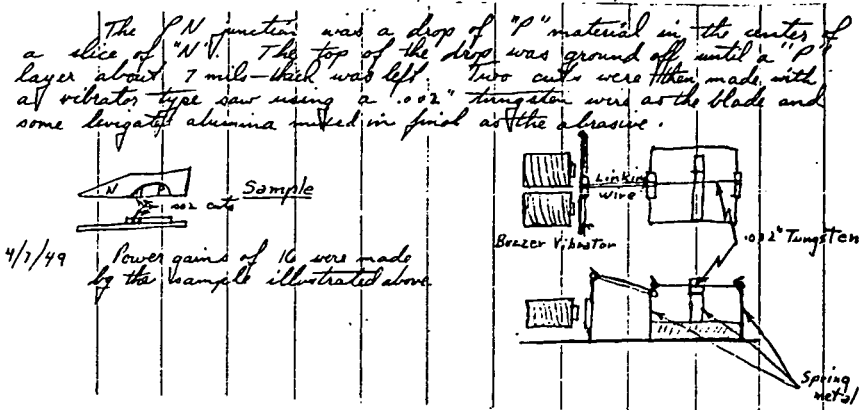 The PN junction was a drop of "P" material in the center of
a slice of "N". The top of the drop was ground off until a "P"
layer about 7 mils-thick was left. Two cuts were then made with
a vibrator type saw using a .002" tungsten wire as the blade and
some levigated alumina mixed in as the abrasive.
N P
.002 cuts
Sample
4/7/49 Power gains of 16 were made
by the sample illustrated above
Linking
wire
Buzzer Vibrator
.002" Tungsten
Spring
metal